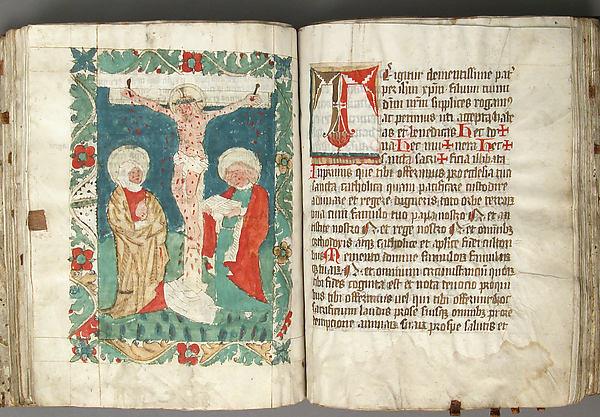 TE igitur clementissime pat
per ihm xpm filium tuum
dnm nrm supplices rogam
ac petimus uti accepta habe
as et benedicas Hec do ✠
na Hec mu ✠ nera Hec ✠
sancta sacri ✠ ficia illibata
Inprimis que tibi offerimus pro ecclesia tua
sancta catholica quam pacificare custodire
adunare et regere digneris toto orbe terraru
una cum famulo tuo papa nostro N et an
tistite nostro N et rege nostro N et omnibus
orthodoxis atq catholice et aplice fidei cultori
bus Memento domine famulorum famularu
q tuar N et omnium circumstantium quor
tibi fides cognita est et nota devocio pro qui
bus tibi offerimus vel qui tibi offerunt hoc
sacrificium laudis pro se suisq omnibus pro re
demptione animar suar pro spe salutis et